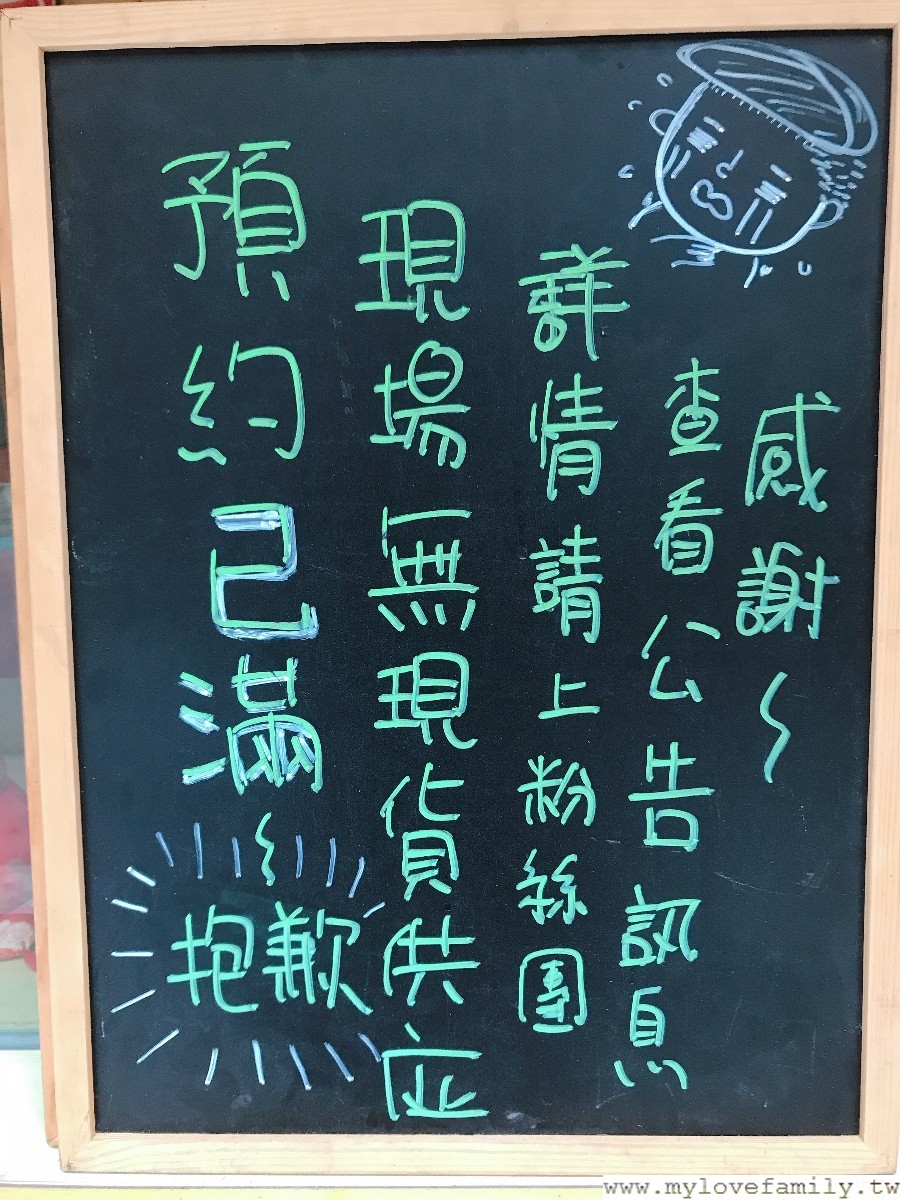 預約已滿~
抱歉
現場無現貨供应
詳情請上粉絲團
查看公告訊息
感謝~
www.mylovefamily.tw